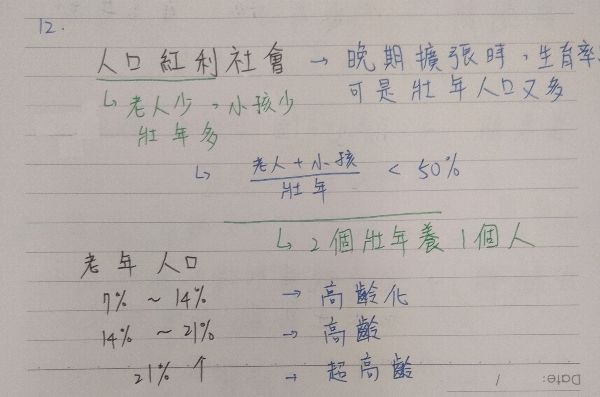 12.
人口紅利社會 → 晚期擴張時，生育率
↳ 老人少，小孩少 可是壯年人口又多
壯年多
↳ 老人+小孩 / 壯年 < 50%
↳ 2個壯年養1個人
老年人口
7% ~ 14% → 高齡化
14% ~ 21% → 高齡
21% ↑ → 超高齡
Date: /